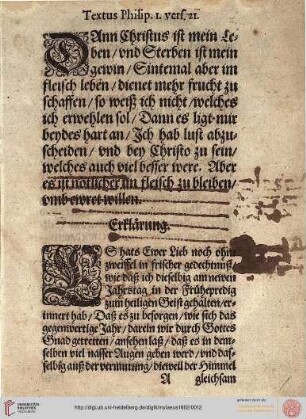 Textus Philip. 1. vers. 21.
DAnn Christus ist mein Le-
ben/ vnd Sterben ist mein
gewin/ Sintemal aber im
fleisch leben/ dienet mehr frucht zu
schaffen/ so weiß ich nicht/ welches
ich erwehlen sol/ Dann es ligt mir
beydes hart an/ Ich hab lust abzu-
scheiden/ vnd bey Christo zu sein/
welches auch viel besser were. Aber
es ist nötlicher im fleisch zu bleiben/
vmb ewret willen.
Erklärung.
ES hats Ewer Lieb noch ohn
zweiffel in frischer gedechtnuß/
wie daß ich dieselbig am newen
Jahrstag in der Frühepredig
zum heiligen Geist gehalten/ er-
innert hab/ Daß es zu besorgen/ wie sich das
gegenwertige Jahr/ darein wir durch Gottes
Gnad getretten/ ansehen laß/ daß es in dem-
selben viel nasser Augen geben werd/ vnd das-
selbig auß der vermuttung/ dieweil der Himmel
A gleichsam
UNIVERSITÄTS-
BIBLIOTHEK
HEIDELBERG
http://digi.ub.uni-heidelberg.de/diglit/mylaeus1602/0012